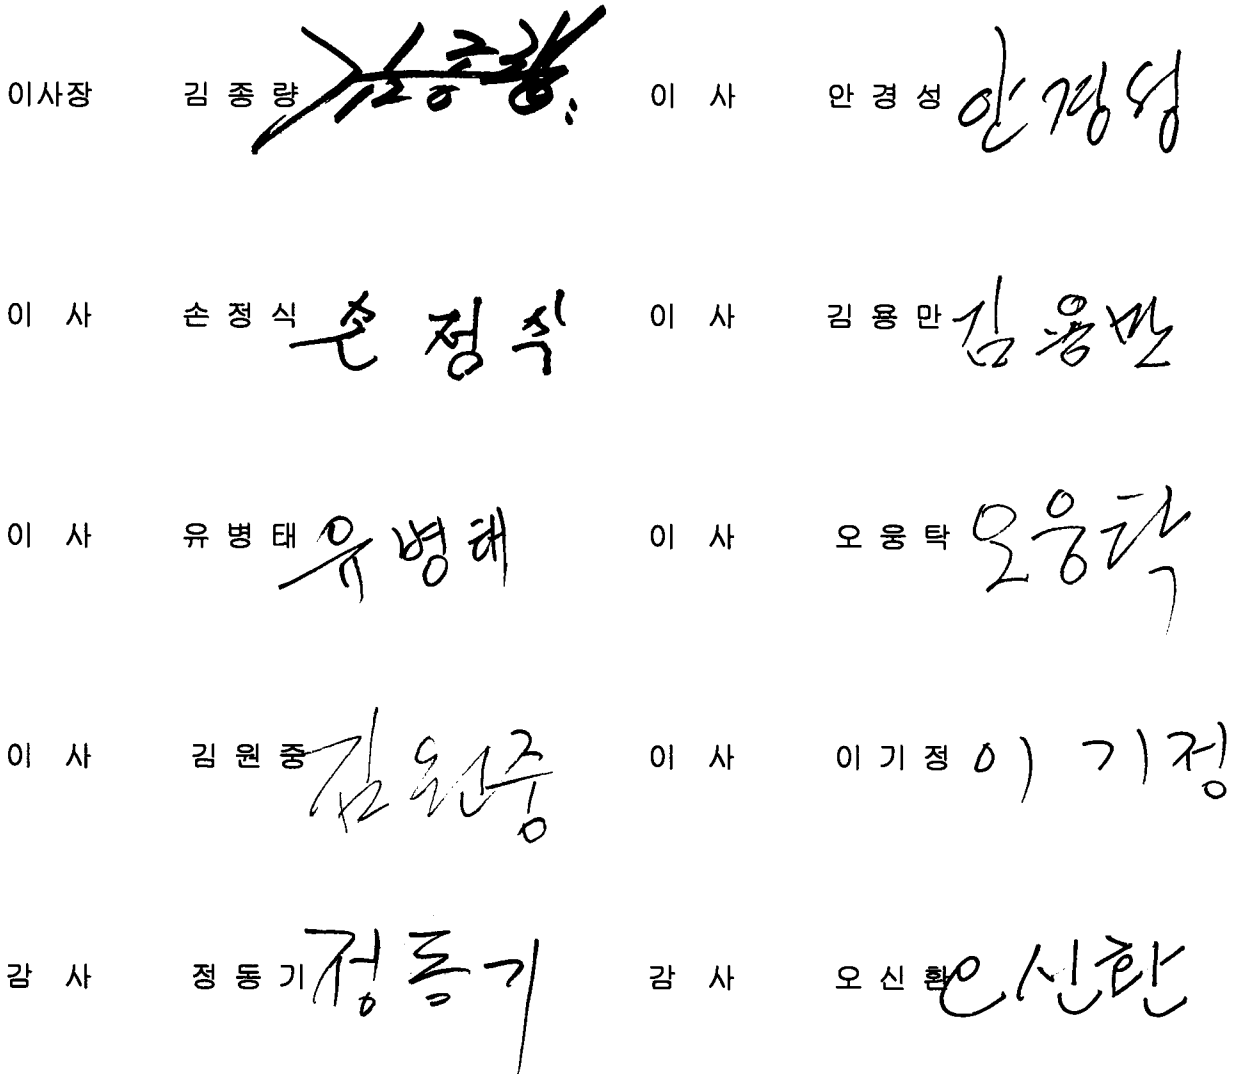 이사장 김종량 김종량 이 사 안경성 안경성
이 사 손정식 손정식 이 사 김용만 김용만
이 사 유병태 유병태 이 사 오웅탁 오웅탁
이 사 김원중 김원중 이 사 이기정 이기정
감 사 정동기 정동기 감 사 오신환 오신환